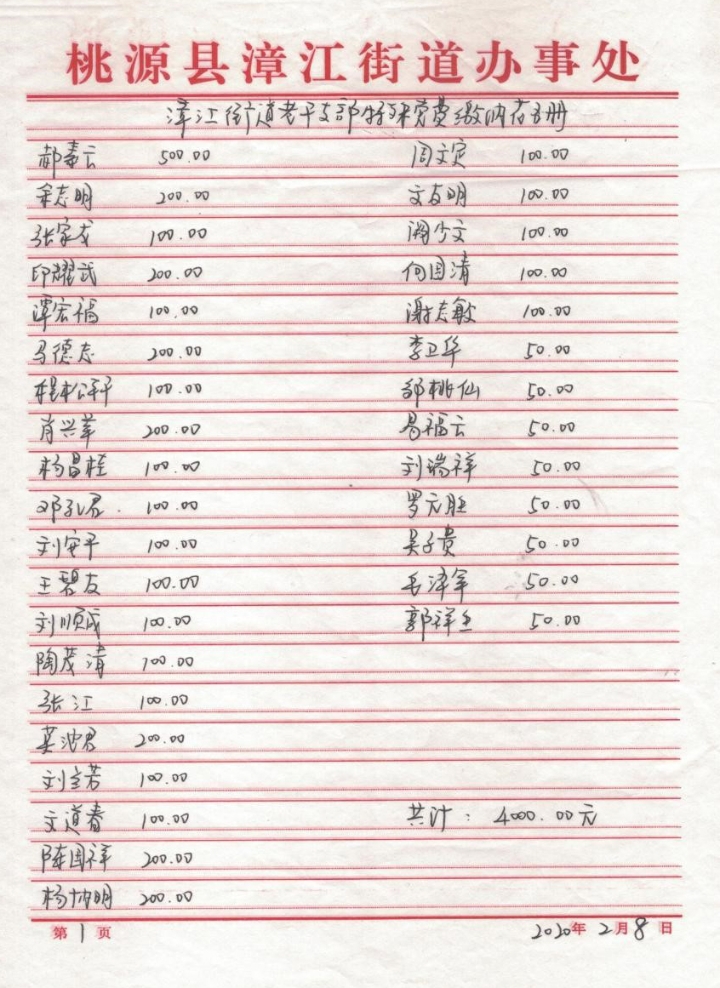 桃源县漳江街道办事处
漳江街道老干支部特殊党费缴纳花名册
郝秦云 500.00 周文定 100.00
余志明 200.00 文友明 100.00
张家戈 100.00 阙少文 100.00
印耀武 200.00 何国清 100.00
谭宏福 100.00 谢志敏 100.00
马德志 200.00 李卫华 50.00
100.00 邹桃仙 50.00
肖兴華 200.00 易福云 50.00
杨昌桂 100.00 刘瑞祥 50.00
邓孔君 100.00 罗元胜 50.00
刘安平 100.00 吴子贵 50.00
王碧友 100.00 毛泽军 50.00
刘顺成 100.00 郭祥玉 50.00
陶茂清 100.00
张江 100.00
莫沙君 200.00
刘立芳 100.00
文道春 100.00 共计：4000.00元
陈国祥 200.00
杨协明 200.00
第1页 2020年2月8日